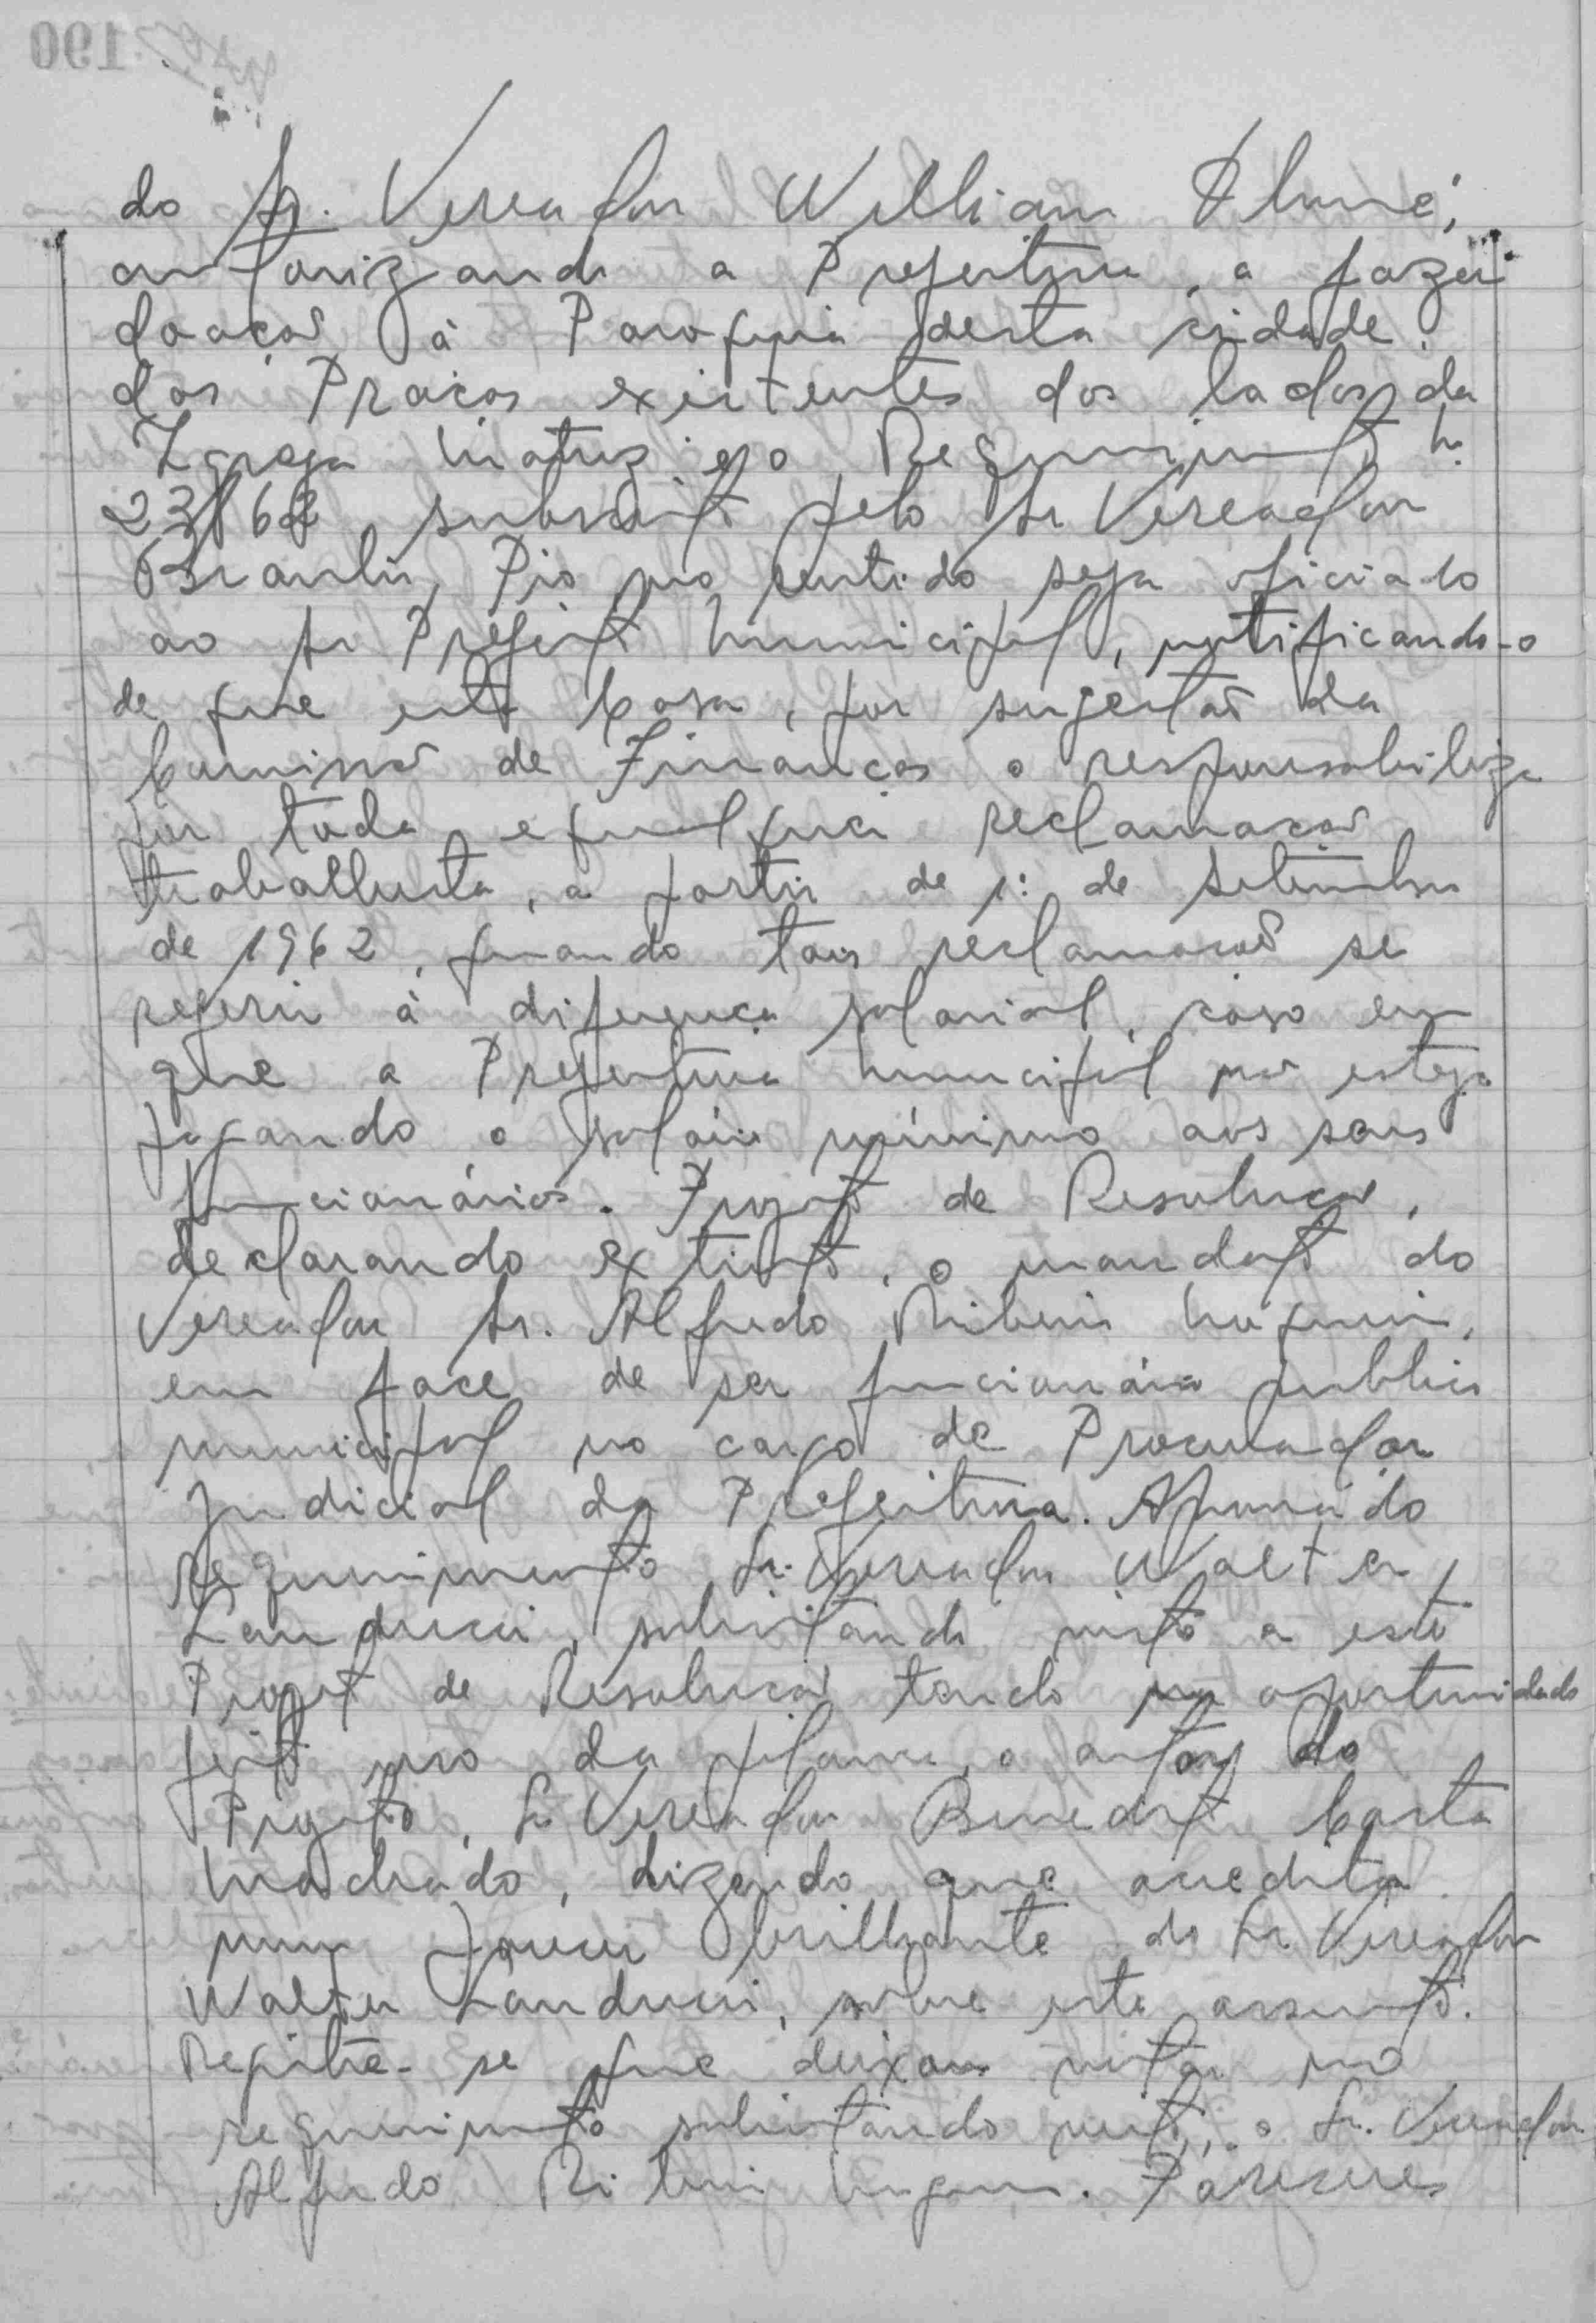 do Sr. Vereador William
autorizando a Prefeitura, a fazer
doação à Paroquia desta cidade,
das Praças existentes dos lados da
Igreja Matriz e o Requerimento n.
23/62 subscrito pelo Sr Vereador
Braulio Pio no sentido seja oficiado
ao Sr Prefeito Municipal, notificando-o
de que esta Casa, por sugestão da
Comissão de Finanças o responsabiliza
por toda e qualquer reclamação
trabalhista, a partir de 1º de Setembro
de 1962, quando tais reclamação se
referir à diferença salarial, caso em
que a Prefeitura Municipal não esteja
pagando o salário mínimo aos seus
funcionários. Projeto de Resolução,
declarando extinto, o mandato do
Vereador Sr. Alfredo Ribeiro
em face de ser funcionário publico
municipal no cargo de Procurador
Judicial da Prefeitura. Aprovado
requerimento Sr. Vereador Walter
Landucci, solicitando vista a este
Projeto de Resolução tendo na oportunidade
feito uso da palavra, o autor do
Projeto, Sr Vereador Benedito Costa
Machado, dizendo que acredita
num parecer brilhante do Sr. Vereador
Walter Landucci, sobre este assunto.
Registre-se que deixou votar no
requerimento solicitando vista, o Sr. Vereador
Alfredo Ribeiro. Pareceres
190